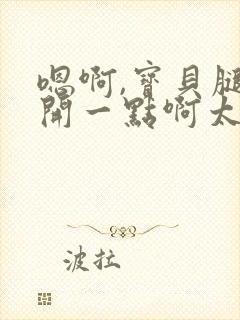 嗯啊,寶貝腿
開一點啊太
波拉